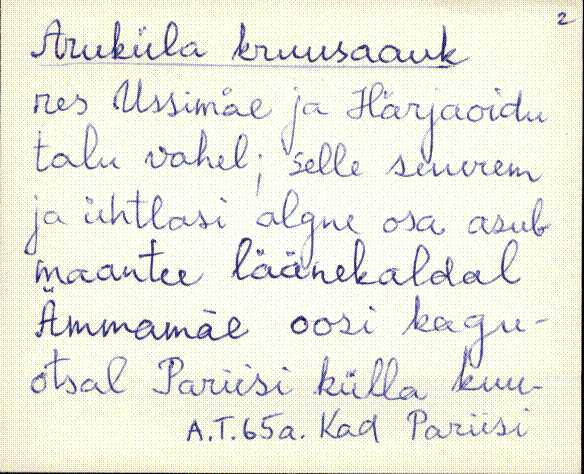 2
Aruküla kruusaauk
res Ussimäe ja Härjaoidu
talu vahel; selle suurem
ja ühtlasi algne osa asub
maantee läänekaldal
Ämmamäe oosi kagu-
otsal Pariisi külla kuu-
A.T. 65a. Kad Pariisi